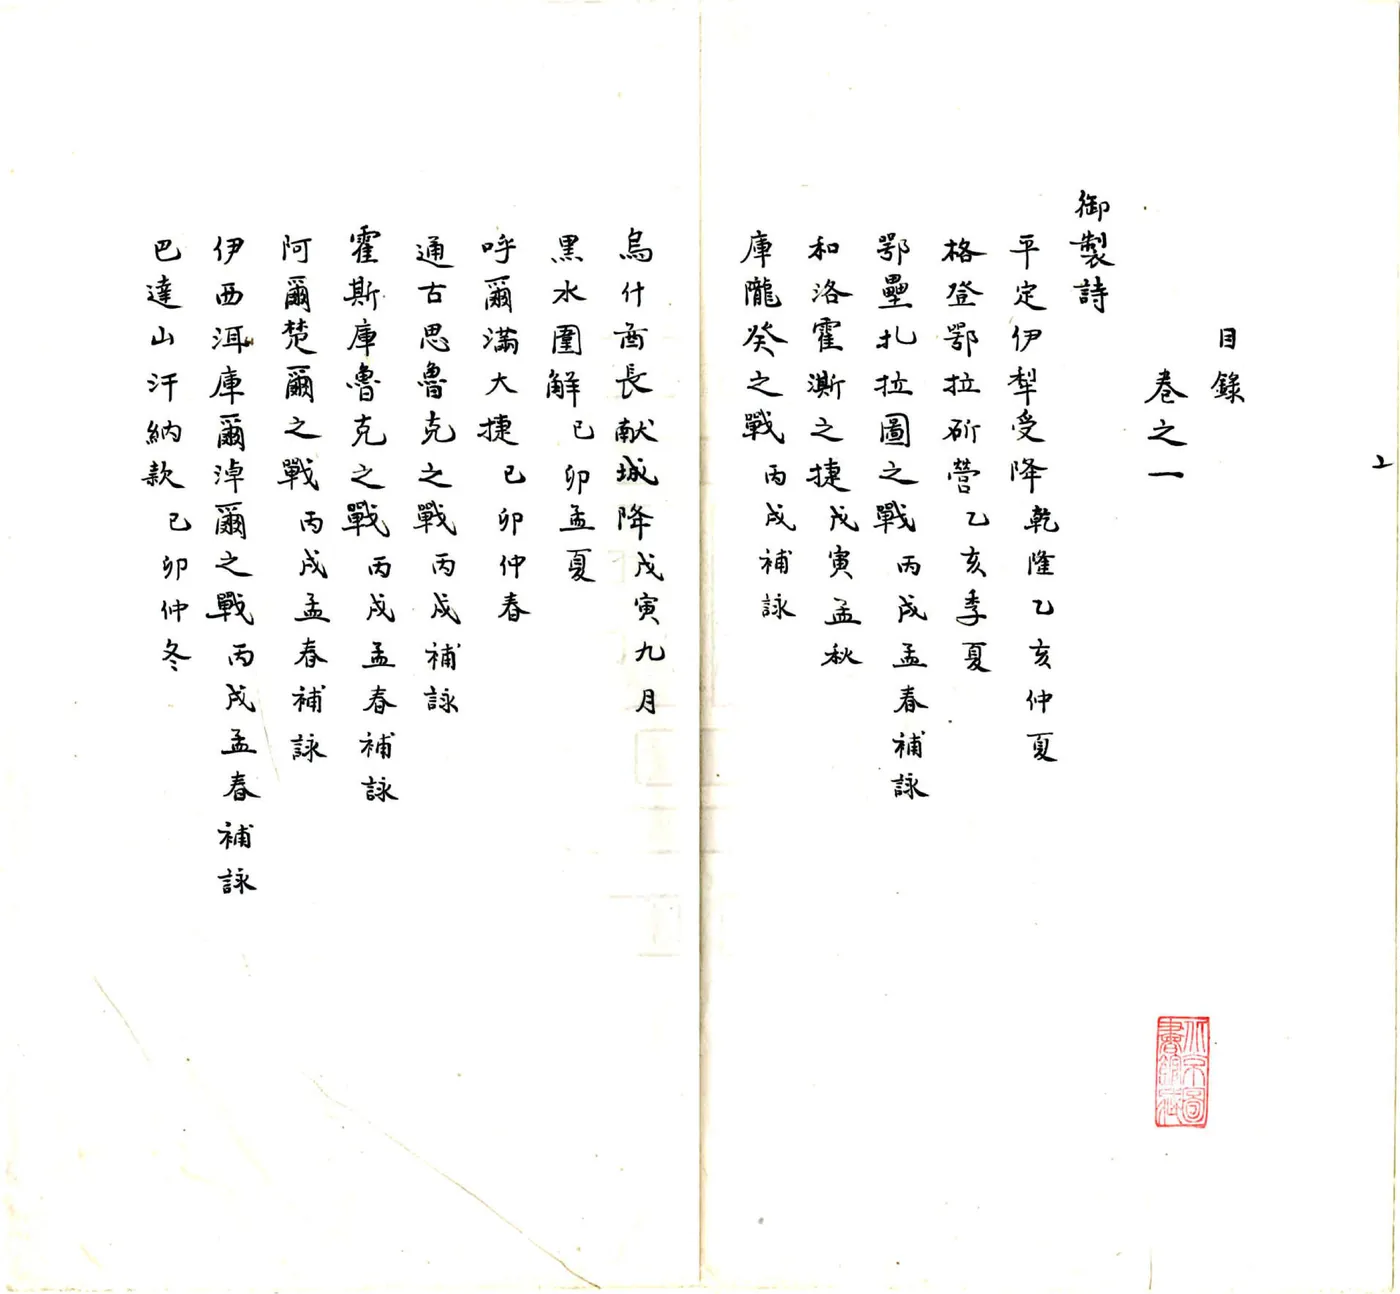 目錄
卷之一
御製詩
平定伊犁受降乾隆乙亥仲夏
格登鄂拉斫營乙亥季夏
鄂壘扎拉圖之戰丙戌孟春補詠
和洛霍澌之捷戊寅孟秋
庫隴癸之戰丙戌補詠
烏什酋長献城降戊寅九月
黑水圍解己卯孟夏
呼爾滿大捷己卯仲春
通古思魯克之戰丙戌補詠
霍斯庫魯克之戰丙戌孟春補詠
阿爾楚爾之戰丙戌孟春補詠
伊西洱庫爾淖爾之戰丙戌孟春補詠
巴達山汗納款己卯仲冬
北京圖
書館藏